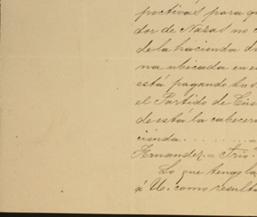 pectivas para q
dor de Nazas no
de la hacienda d
na ubicada en e
está pagando los
el Partido de
de está la cabecer
cienda. . . . . . a
Fernandez. = Srio.
Lo que tengo la
á Ud. como result